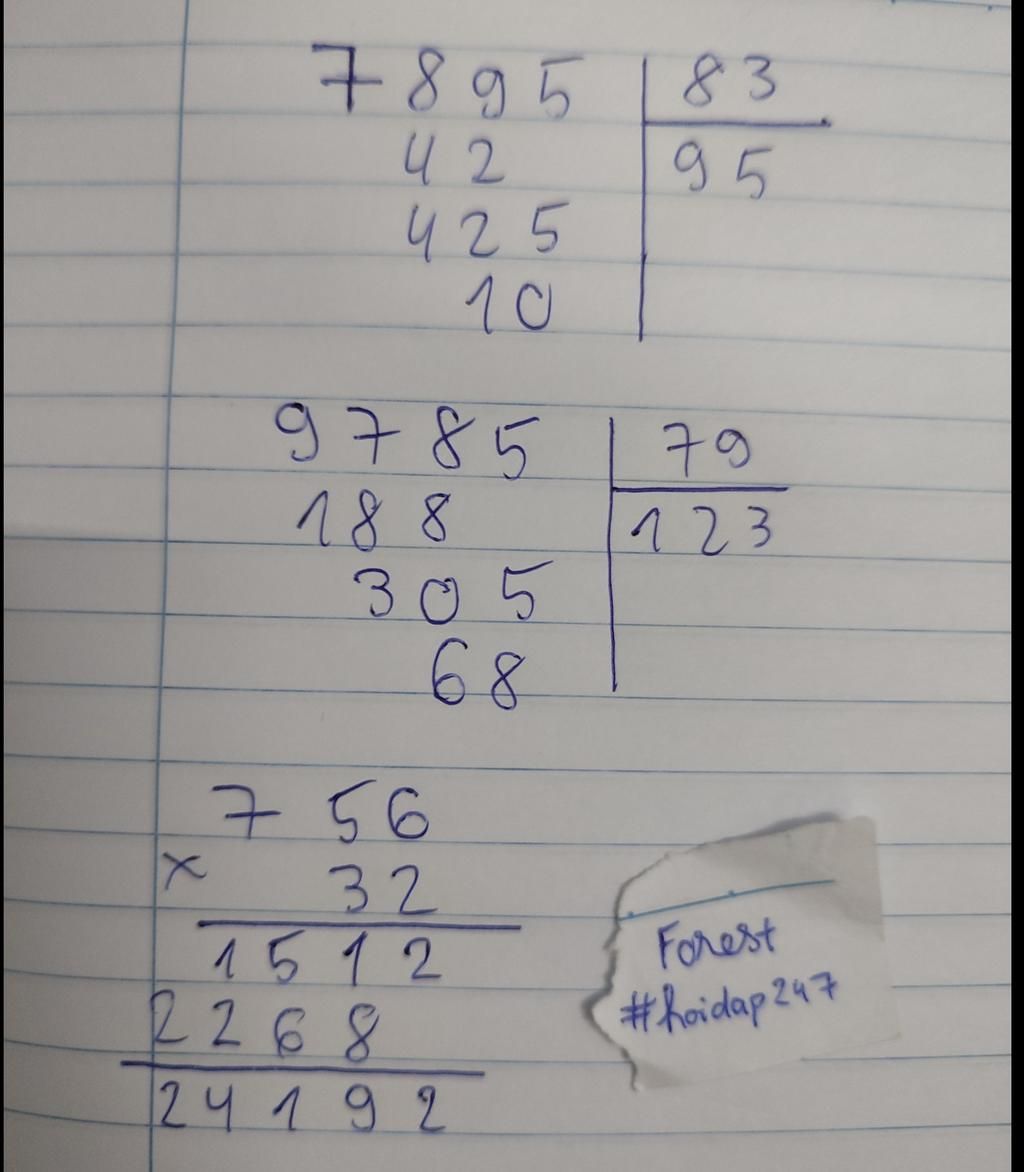 7895 83
42 95
425
10
9785 79
188 123
305
68
756
x 32
1512
2268
24192
Forest
#hoidap247